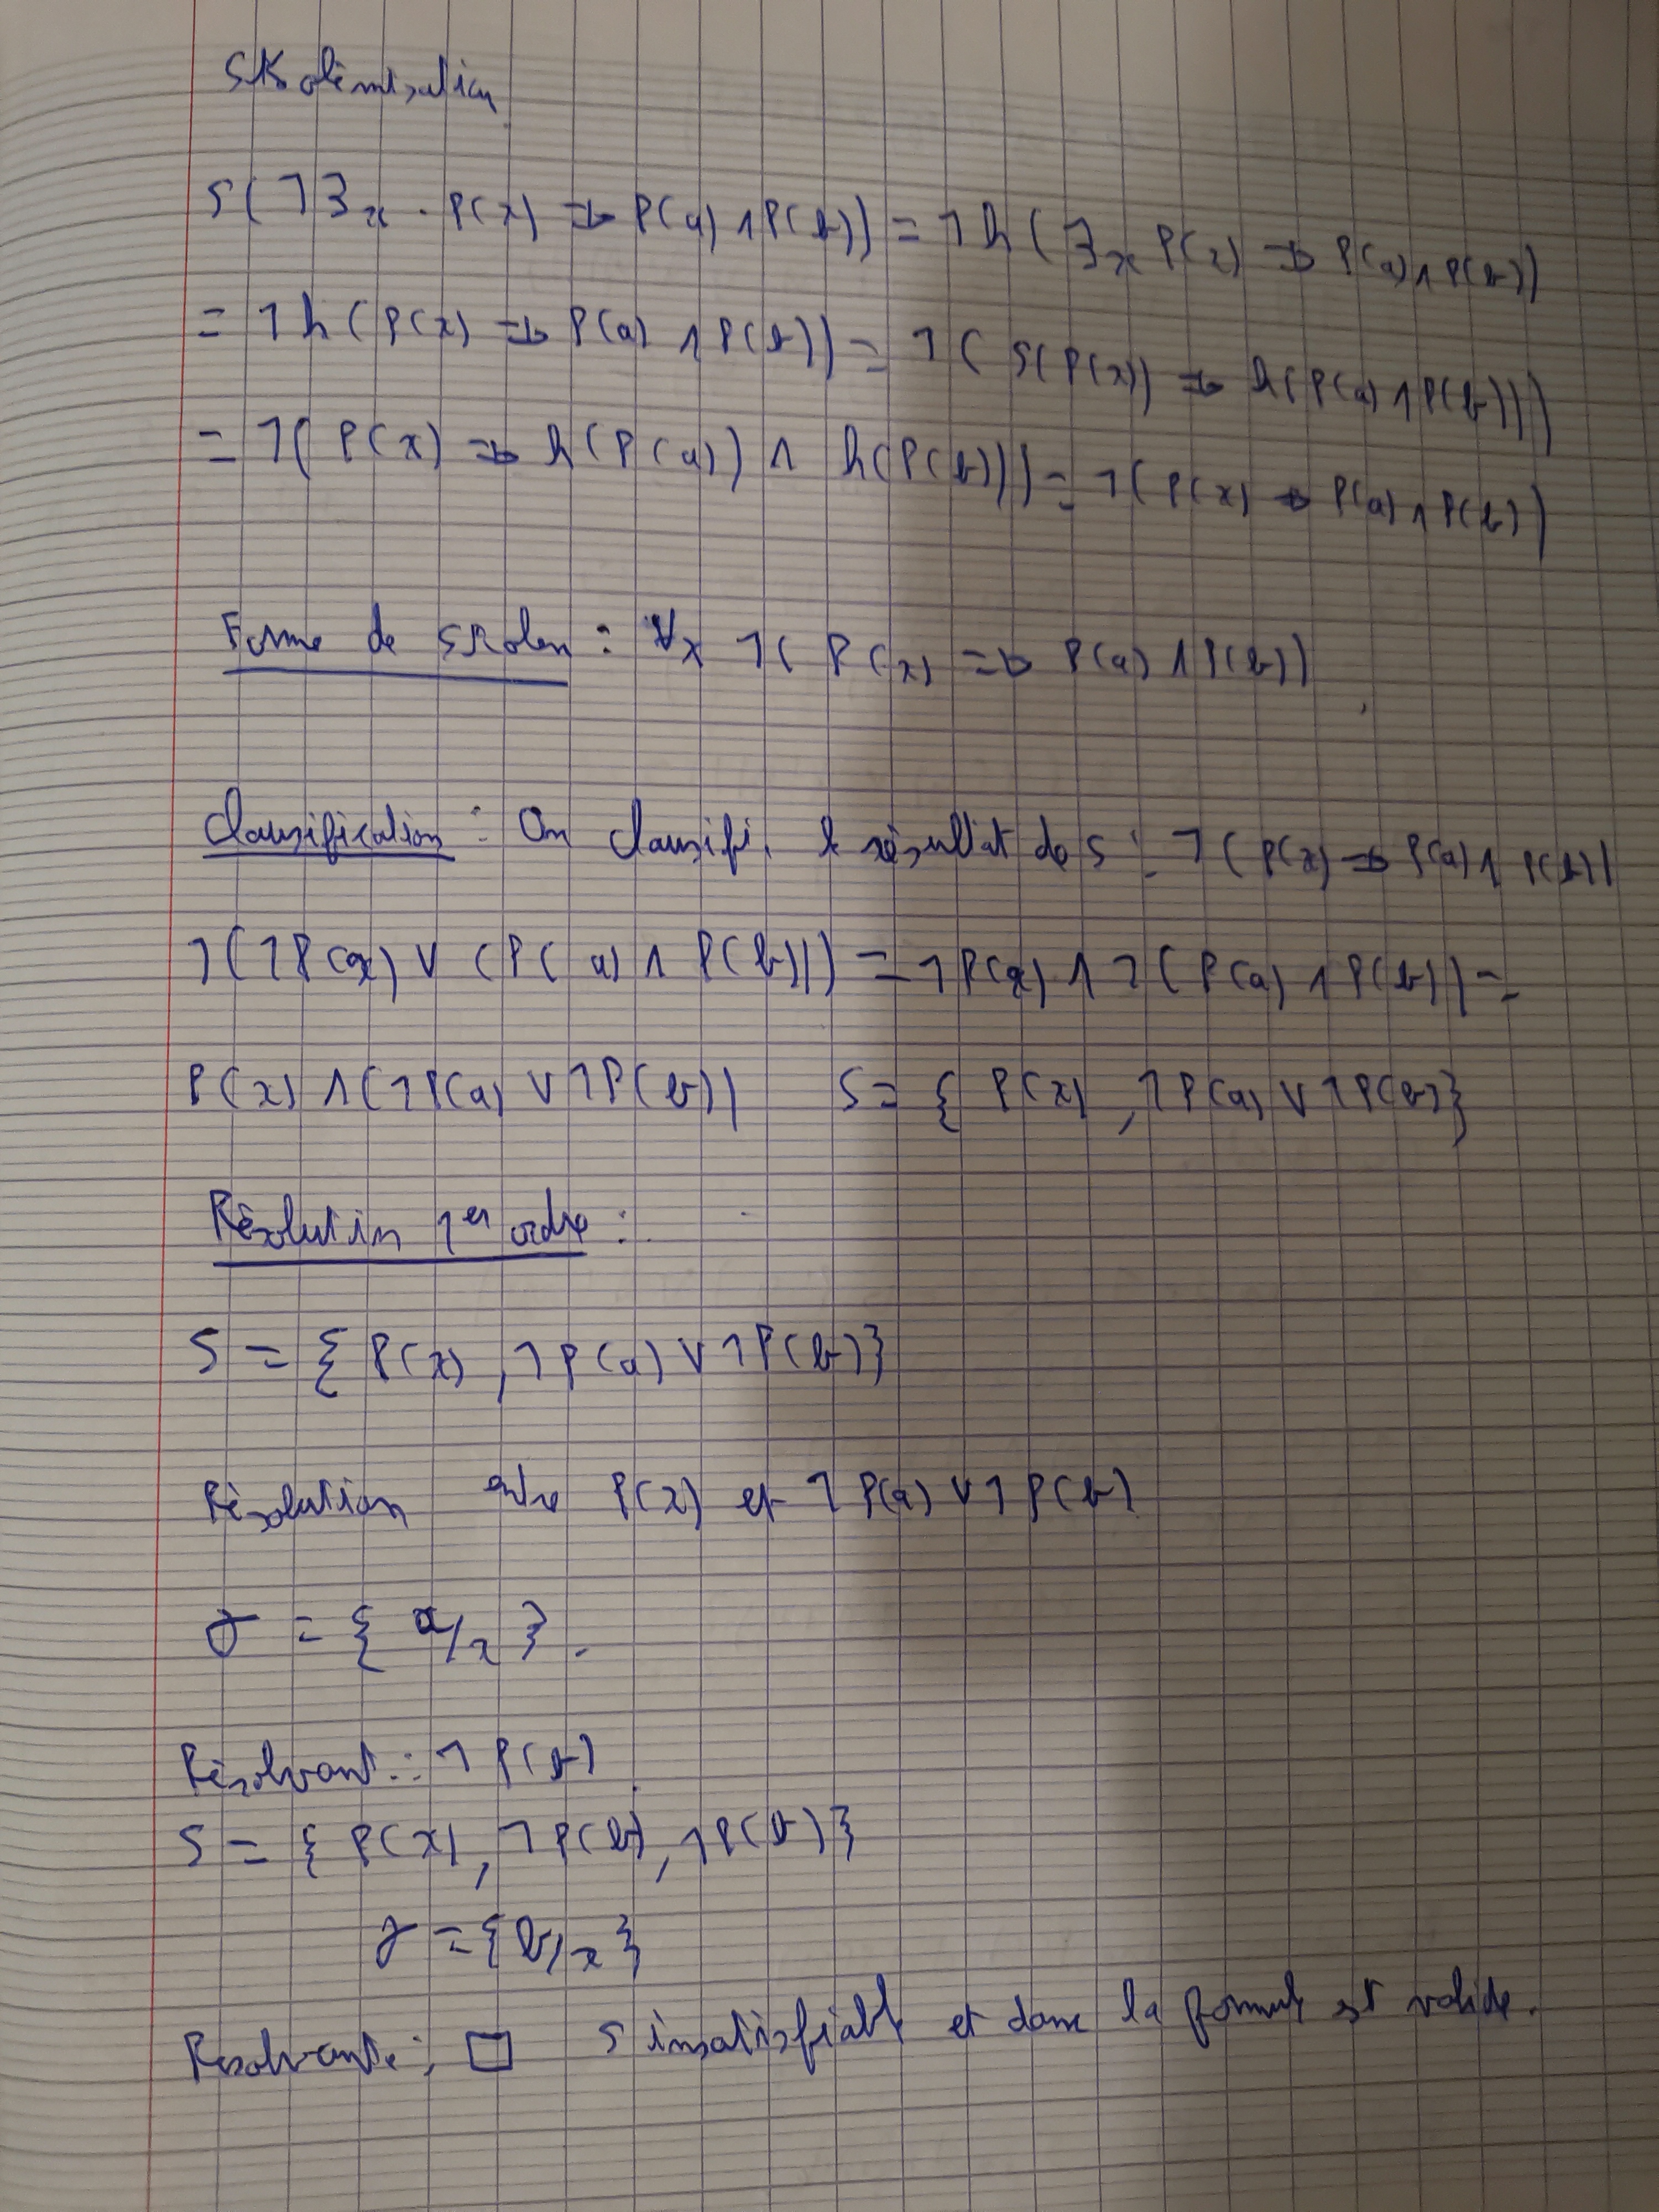 Skolémisation
S(¬∃x . P(x) ⇒ P(a) ∧ P(b)) = ¬h(∃x P(x) ⇒ P(a) ∧ P(b))
= ¬h(P(x) ⇒ P(a) ∧ P(b)) = ¬(S(P(x)) ⇒ h(P(a) ∧ P(b)))
= ¬(P(x) ⇒ h(P(a)) ∧ h(P(b))) = ¬(P(x) ⇒ P(a) ∧ P(b))
Forme de Skolem : ∀x ¬(P(x) ⇒ P(a) ∧ P(b))
Clausification : On clausifi. le résultat de S : ¬(P(x) ⇒ P(a) ∧ P(b))
¬(¬P(x) ∨ (P(a) ∧ P(b))) = ¬P(x) ∧ ¬(P(a) ∧ P(b)) =
P(x) ∧ (¬P(a) ∨ ¬P(b)) S = { P(x) , ¬P(a) ∨ ¬P(b)}
Résolution 1er ordre :
S = { P(x) , ¬P(a) ∨ ¬P(b)}
Résolution entre P(x) et ¬P(a) ∨ ¬P(b)
σ = { a/x } .
Résolvant : ¬P(b)
S = { P(x) , ¬P(b) , ¬P(b)}
σ = {b/x}
Résolvante : □ S insatisfiable et donc la formule est valide.